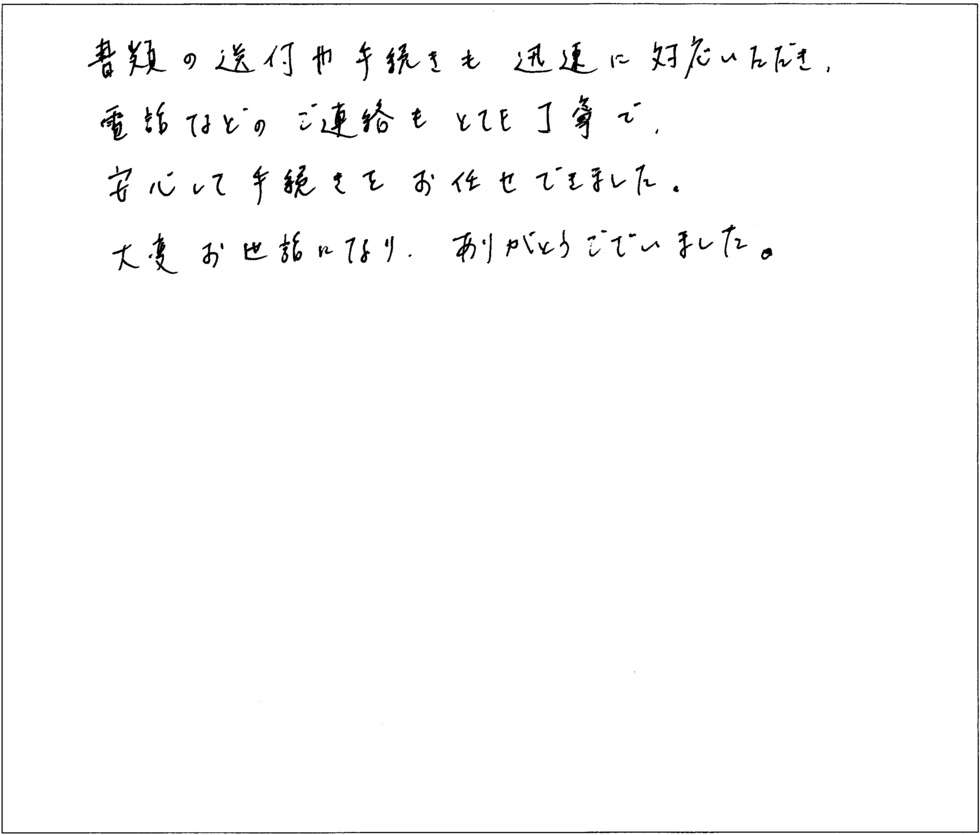 書類の送付や手続きも 迅速に 対応いただき、
電話などの ご連絡も とても丁寧で、
安心して 手続きを お任せできました。
大変 お世話になり、 ありがとうございました。